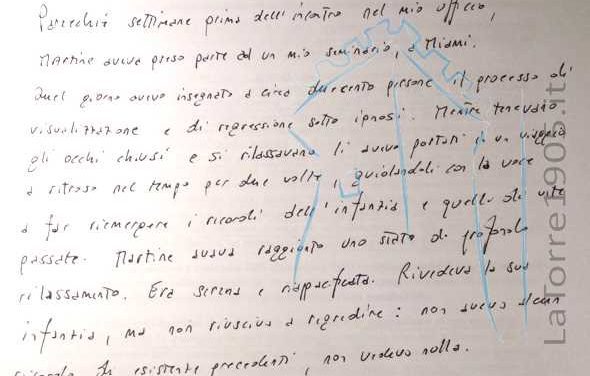 Parecchie settimane prima dell'incontro nel mio ufficio,
Martine aveva preso parte ad un mio seminario, a Miami.
Quel giorno avevo insegnato a circa duecento persone il processo di
visualizzazione e di regressione sotto ipnosi. Mentre tenevano
gli occhi chiusi e si rilassavano li avevo portati in un viaggio
a ritroso nel tempo per due volte, guidandoli con la voce
a far riemergere i ricordi dell'infanzia e quello di vite
passate. Martine aveva raggiunto uno stato di profondo
rilassamento. Era serena e riappacificata. Rivedeva la sua
infanzia, ma non riusciva a regredire: non aveva alcun
ricordo di esistente precedenti, non vedeva nulla.
LaTorre1905.it